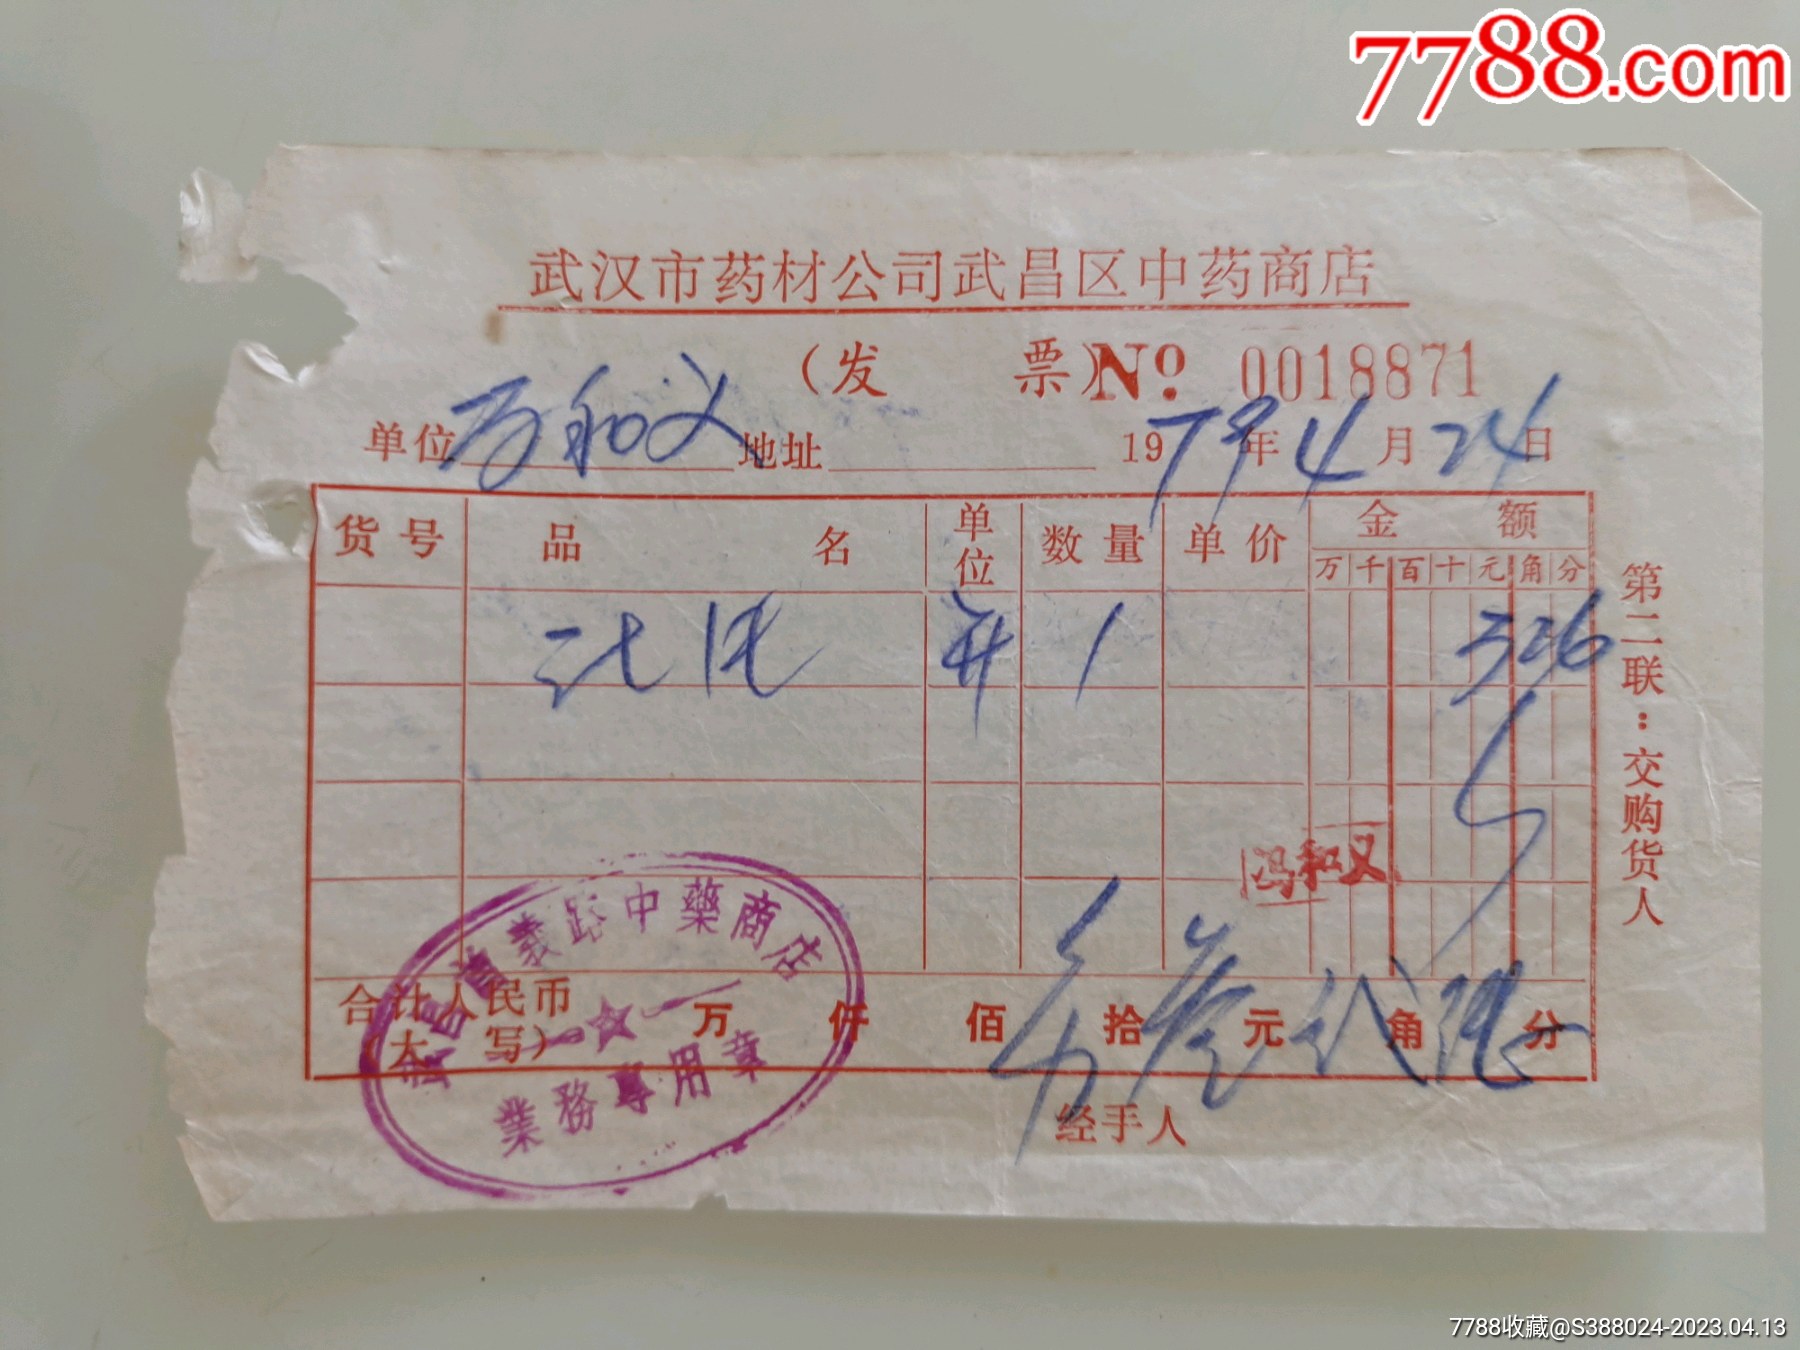 7788.com
武汉市药材公司武昌区中药商店
（发 票） No. 0018871
单位 冯和义 地址 1979年4月24日
货号 品 名 单位 数量 单价 金 额
万 千 百 十 元 角 分
1 326
冯和义
第二联：交购货人
義路中藥商店
業務專用章
合计人民币（大写） 万 仟 佰 拾 元 角 分
经手人
7788收藏@S388024-2023.04.13